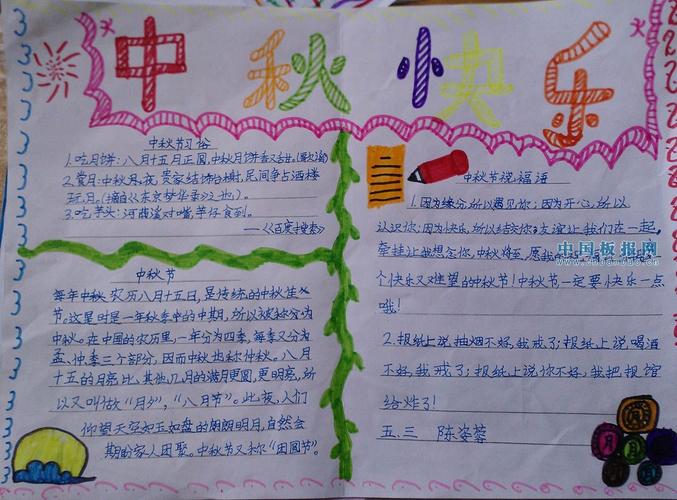 中秋快乐
中秋节习俗
1.吃月饼:八月十五月正圆,中秋月饼香又甜。(歌谣)
2.赏月:中秋月夜,贵家结饰台榭,民间争占酒楼
玩月。(摘自《东京梦华录》也)。
3.吃芋头:河蒞溪对嘴,芋仔食到。
——《百度搜索》
中秋节
每年中秋农历八月十五日,是传统的中秋佳
节。这是时是一年秋季中的中期,所以被称为中
中秋。在中国的农历里,一年分为四季,每季又分为
孟、仲、季三个部分,因而中秋也称仲秋。八月
十五的月亮比其他几月的满月更圆,更明亮,所
以又叫做“月夕”,“八月节”。此夜,人们
仰望天空如玉如盘的朗朗明月,自然会
期盼家人团聚。中秋节又称“团圆节”。
中秋节说福语
1.因为缘分,所以遇见你;因为开心,所以
认识你;因为快乐,所以结交你;友谊让我们在一起,
牵挂让我想念你,中秋将至,愿我
个快乐又难望的中秋节!中秋节一定要快乐一点
哦!
2.报纸上说抽烟不好,我戒了;报纸上说喝酒
不好,我戒了;报纸上说你不好,我把报馆
给炸了!
五.三 陈姿蓉
中国板报网